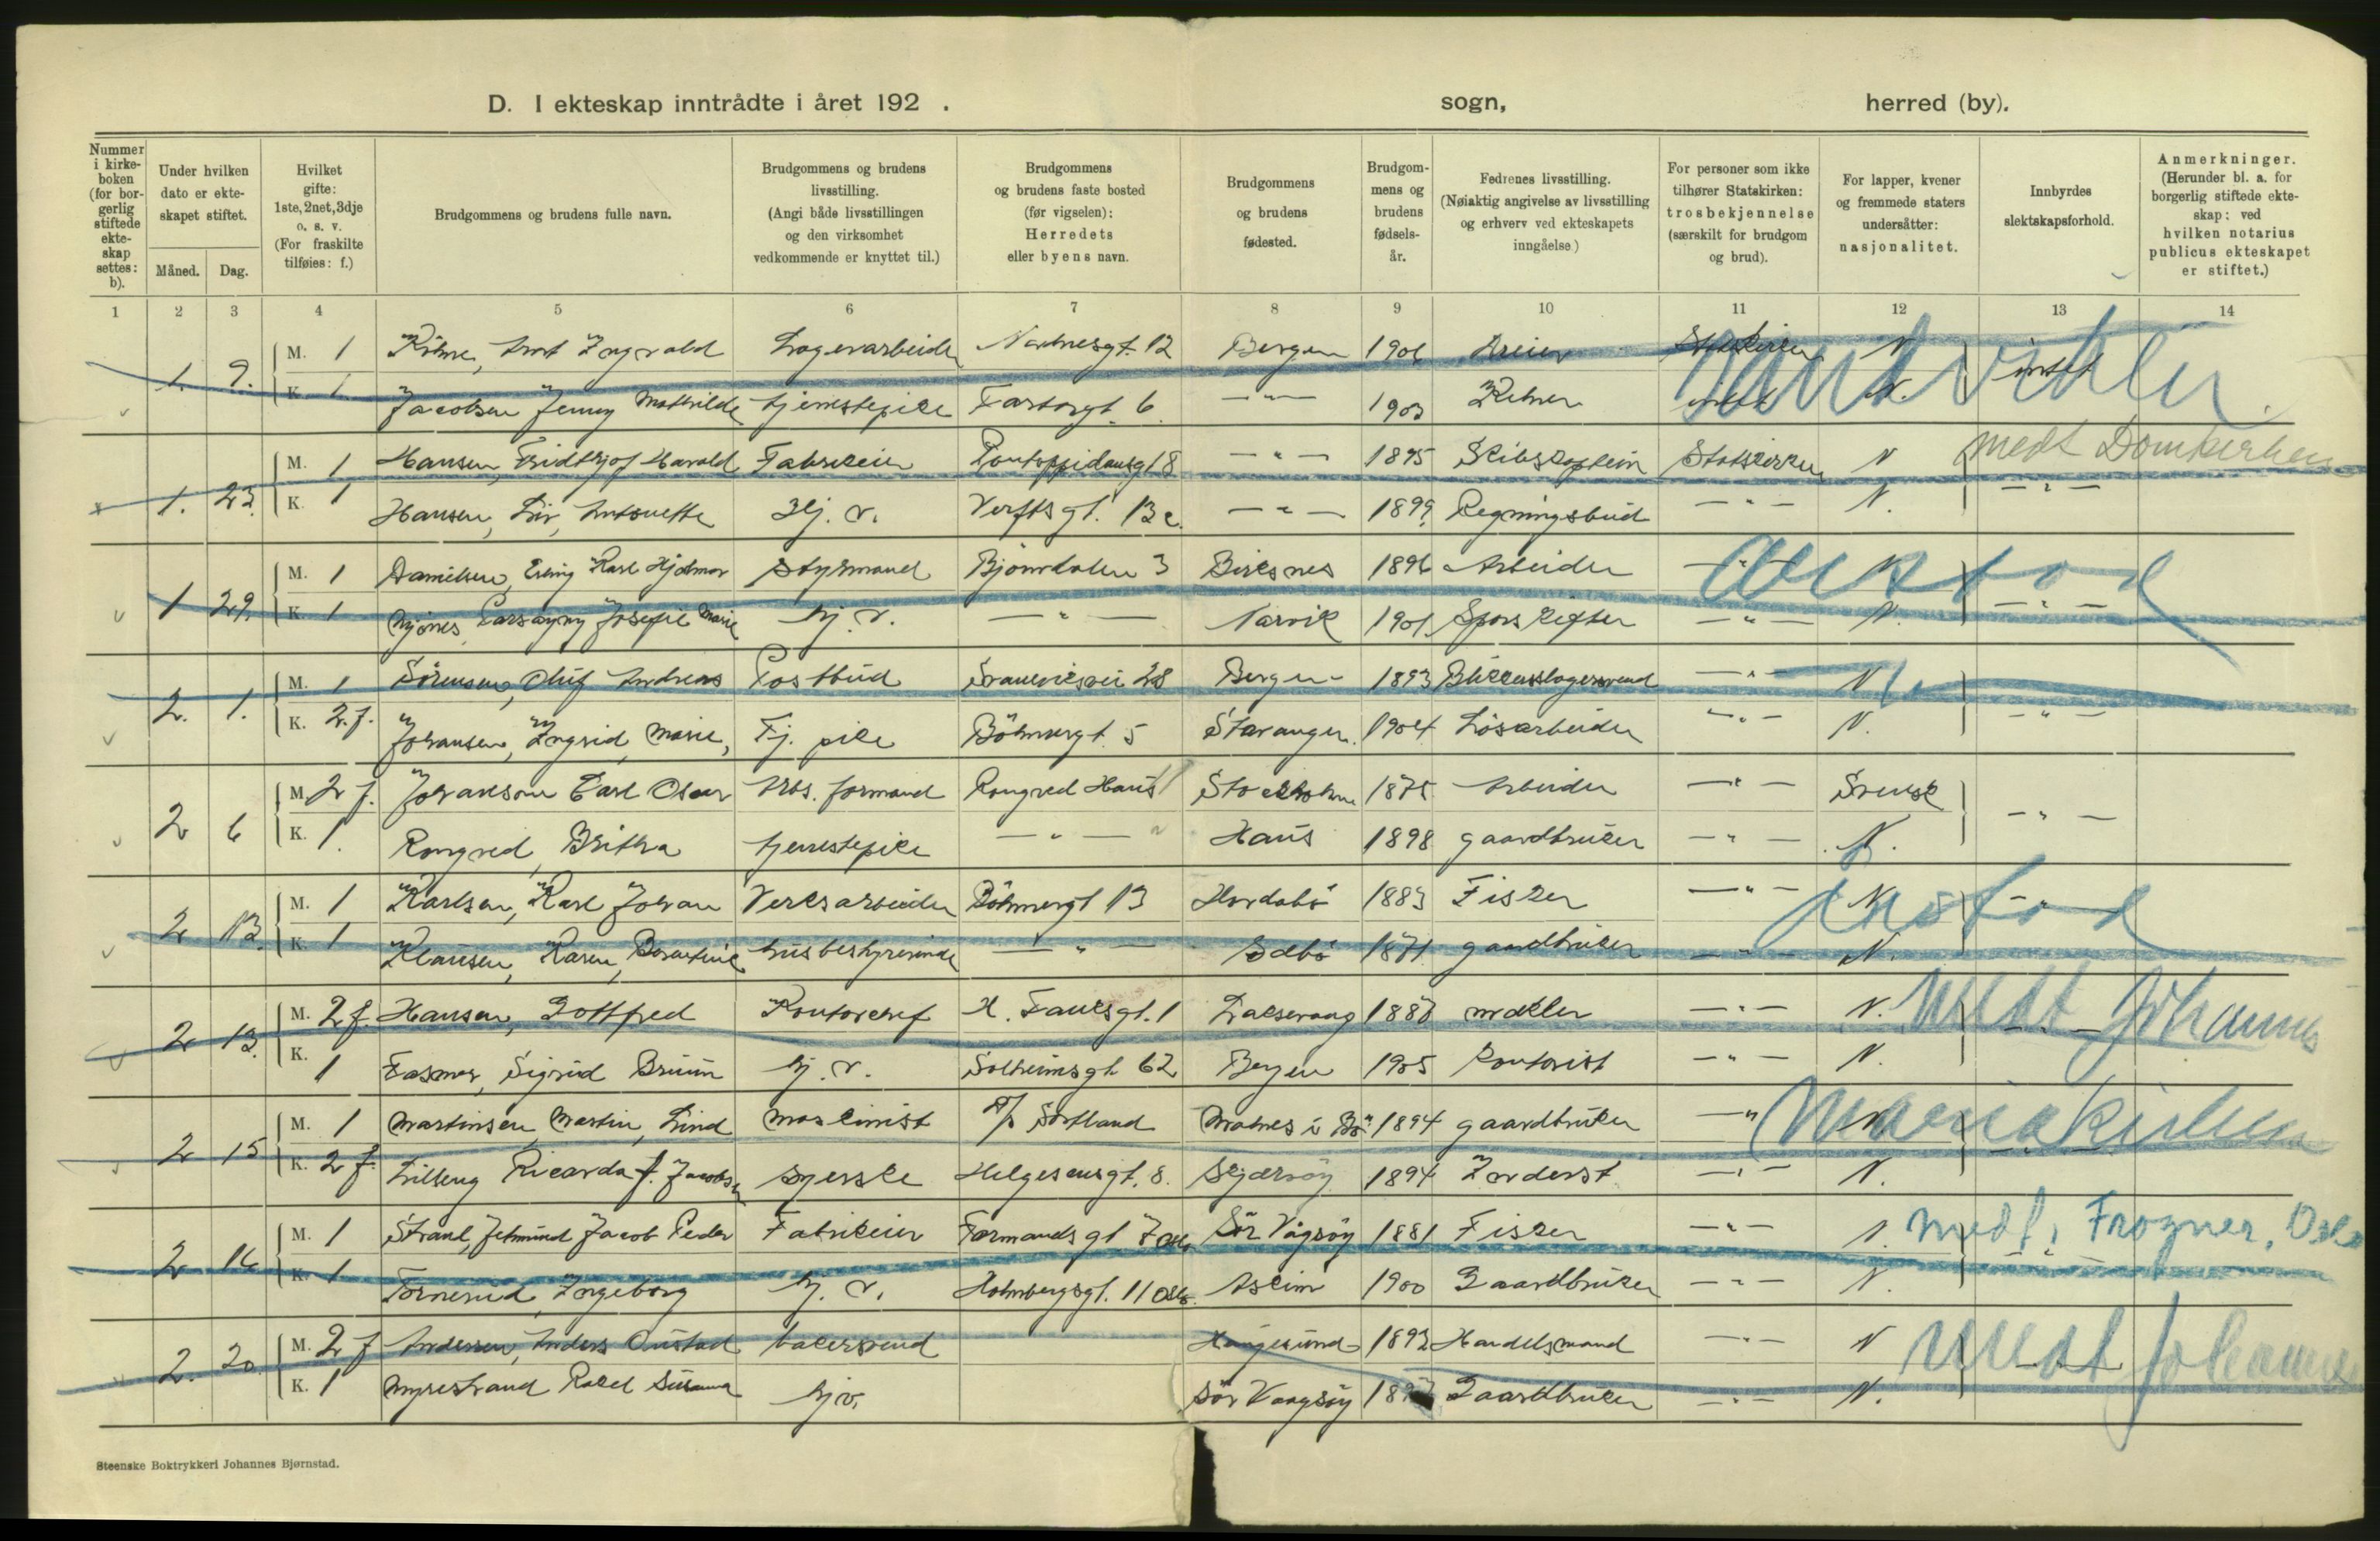 D. I ekteskap inntrådte i året 192 . sogn, herred (by).
Nummer i kirkeboken (for borgerlig stiftede ekteskap settes: b).
Under hvilken dato er ekteskapet stiftet.
Måned. Dag.
Hvilket gifte: 1ste, 2net, 3dje o. s. v. (For fraskilte tilføies: f.)
Brudgommens og brudens fulle navn.
Brudgommens og brudens livsstilling. (Angi både livsstillingen og den virksomhet vedkommende er knyttet til.)
Brudgommens og brudens faste bosted (før vigselen): Herredets eller byens navn.
Brudgommens og brudens fødested.
Brudgommens og brudens fødselsår.
Fedrenes livsstilling. (Nøiaktig angivelse av livsstilling og erhverv ved ekteskapets inngåelse)
For personer som ikke tilhører Statskirken: trosbekjennelse (særskilt for brudgom og brud).
For lapper, kvener og fremmede staters undersåtter: nasjonalitet.
Innbyrdes slektskapsforhold.
Anmerkninger. (Herunder bl. a. for borgerlig stiftede ekteskap: ved hvilken notarius publicus ekteskapet er stiftet.)
1 2 3 4 5 6 7 8 9 10 11 12 13 14
1. 9. M. 1 Ingvald Lagerarbeider Bergen 1906 Dreier Statskirken N intet
K. 1. Jacobsen Jenny Mathilde tjenestepike 6 — " — 1903 Kelner N.
Sandviken
1. 23. M. 1 Hansen, Fridthjof Harald Fabrikeier Pontoppidansgt 8 — " — 1895 Skibskaptein Statskirken N medt Domkirken
K. 1 Hansen, Liv, Antonette Hj. v. Verftsgt. 13 c. — " — 1899 Regningsbud — " — N. — " —
1 29. M. 1 Danielsen, Erling Karl Hjalmar Styrmand Bjørndalen 3 1896 Arbeider — " — N
K. 1 Josefie Marie hj. v. — " — Narvik 1901 — " — N. — " —
2. 1. M. 1 Sörensen, Oluf Andreas Postbud 28 Bergen 1893 Blikkenslagersvend — " — N
K. 2. f. Johansen, Ingrid, Marie, Tj. pike Böhmergt. 5 Stavanger. 1904 Lösarbeider — " — N. — " —
2 6 M. 2 f. Johansson Carl Oscar Arbs. formand Rongved Haus Stockholm 1875 Arbeider — " — Svensk
K. 1. Rongved, Britha tjenestepike — " — Haus 1898 gaardbruker — " — N. — " —
2 13. M. 1 Karlsen, Karl Johan Verksarbeider Böhmergt 13 Hordabö 1883 Fisker — " — N
K. 1 Klausen, Karen, Berentine husbestyrerinde — " — 1871 gaardbruker — " — N.
2 13. M. 2 f. Hansen, Gottfred Kontorchef H. Faucsgt. 1 Laksevaag 1888 mækler — " — N. medt Johannes
K. 1 Fasmer, Sigrid Bruun hj. v. Solheimsgt 62 Bergen 1905 Kontorist — " — N.
2 15 M. 1 Martinsen, Martin, Lind maskinist Sortland 1894 gaardbruker — "
K. 2 f. Ricarda f. Jacobsen syerske Helgesensgt. 8. Skjærvöy 1894 — " — N.
Mariakirken
2 16 M. 1 Strand, Jetmund Jacob Peder Fabrikeier Sör Vågsöy 1881 Fisker — " — N. medt, Frogner, Oslo
K. 1 Ingeborg hj. v. Holmbergsgt. 11 Oslo. Askim 1900 Gaardbruker — " — N.
2. 20 M. 2 f Andersen, Anders Gustad bakersvend Haugesund 1893 Handelsmand — " — N medt Johannes
K. 1 Myrestrand Rakel Susanna hj v. Sör Vaagsöy Gaardbruker — " — N.
Steenske Boktrykkeri Johannes Bjørnstad.